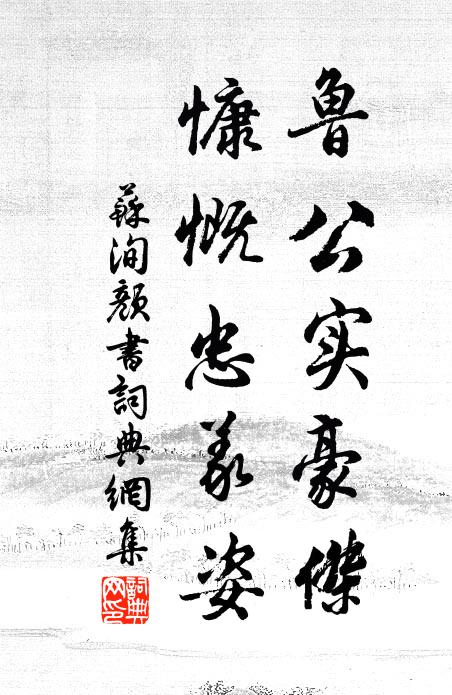 魯公实豪傑
慷慨忠義姿
蘇洵顏書詞典網集
詞典网印